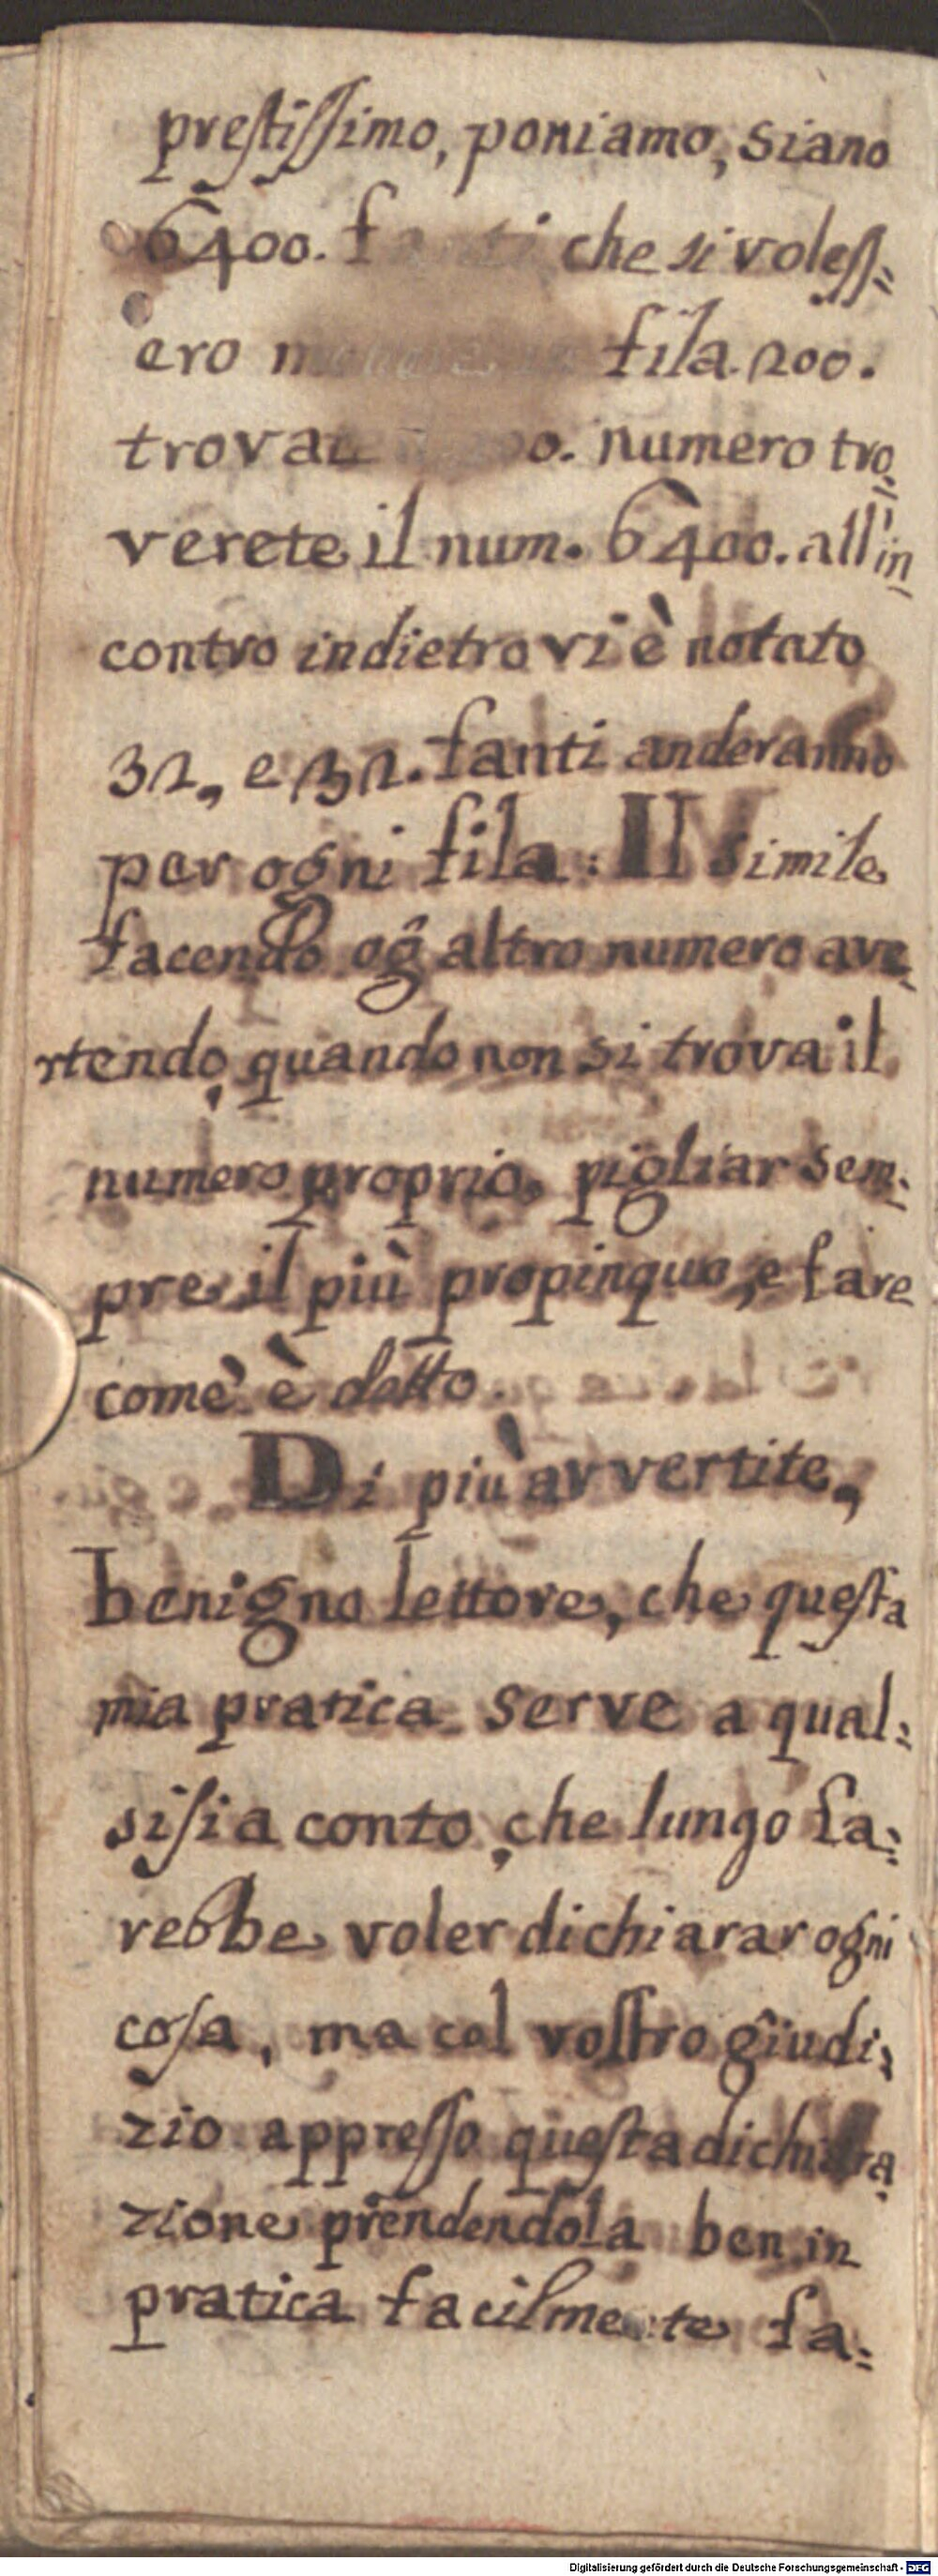 prestissimo, poniamo, siano
6400. fanti che si voless=
ero fila. 200.
trovate numero tro=
verete il num. 6400. all'in=
contro indietro vi è notato
32, e 32. fanti anderanno
per ogni fila: Il simile
facendo og̃ altro numero ave=
rtendo, quando non si trova il
numero proprio, pigliar sem=
pre il più propinquo, e fare
comè è detto.
Di più avvertite,
benigno lettore, che questa
mia pratica serve a qual=
sisia conto, che lungo sa=
rebbe voler dichiarar ogni
cosa, ma col vostro giudi=
zio appresso questa dichiara
zione prendendola ben in
pratica facilmente sa=
Digitalisierung gefördert durch die Deutsche Forschungsgemeinschaft - DFG